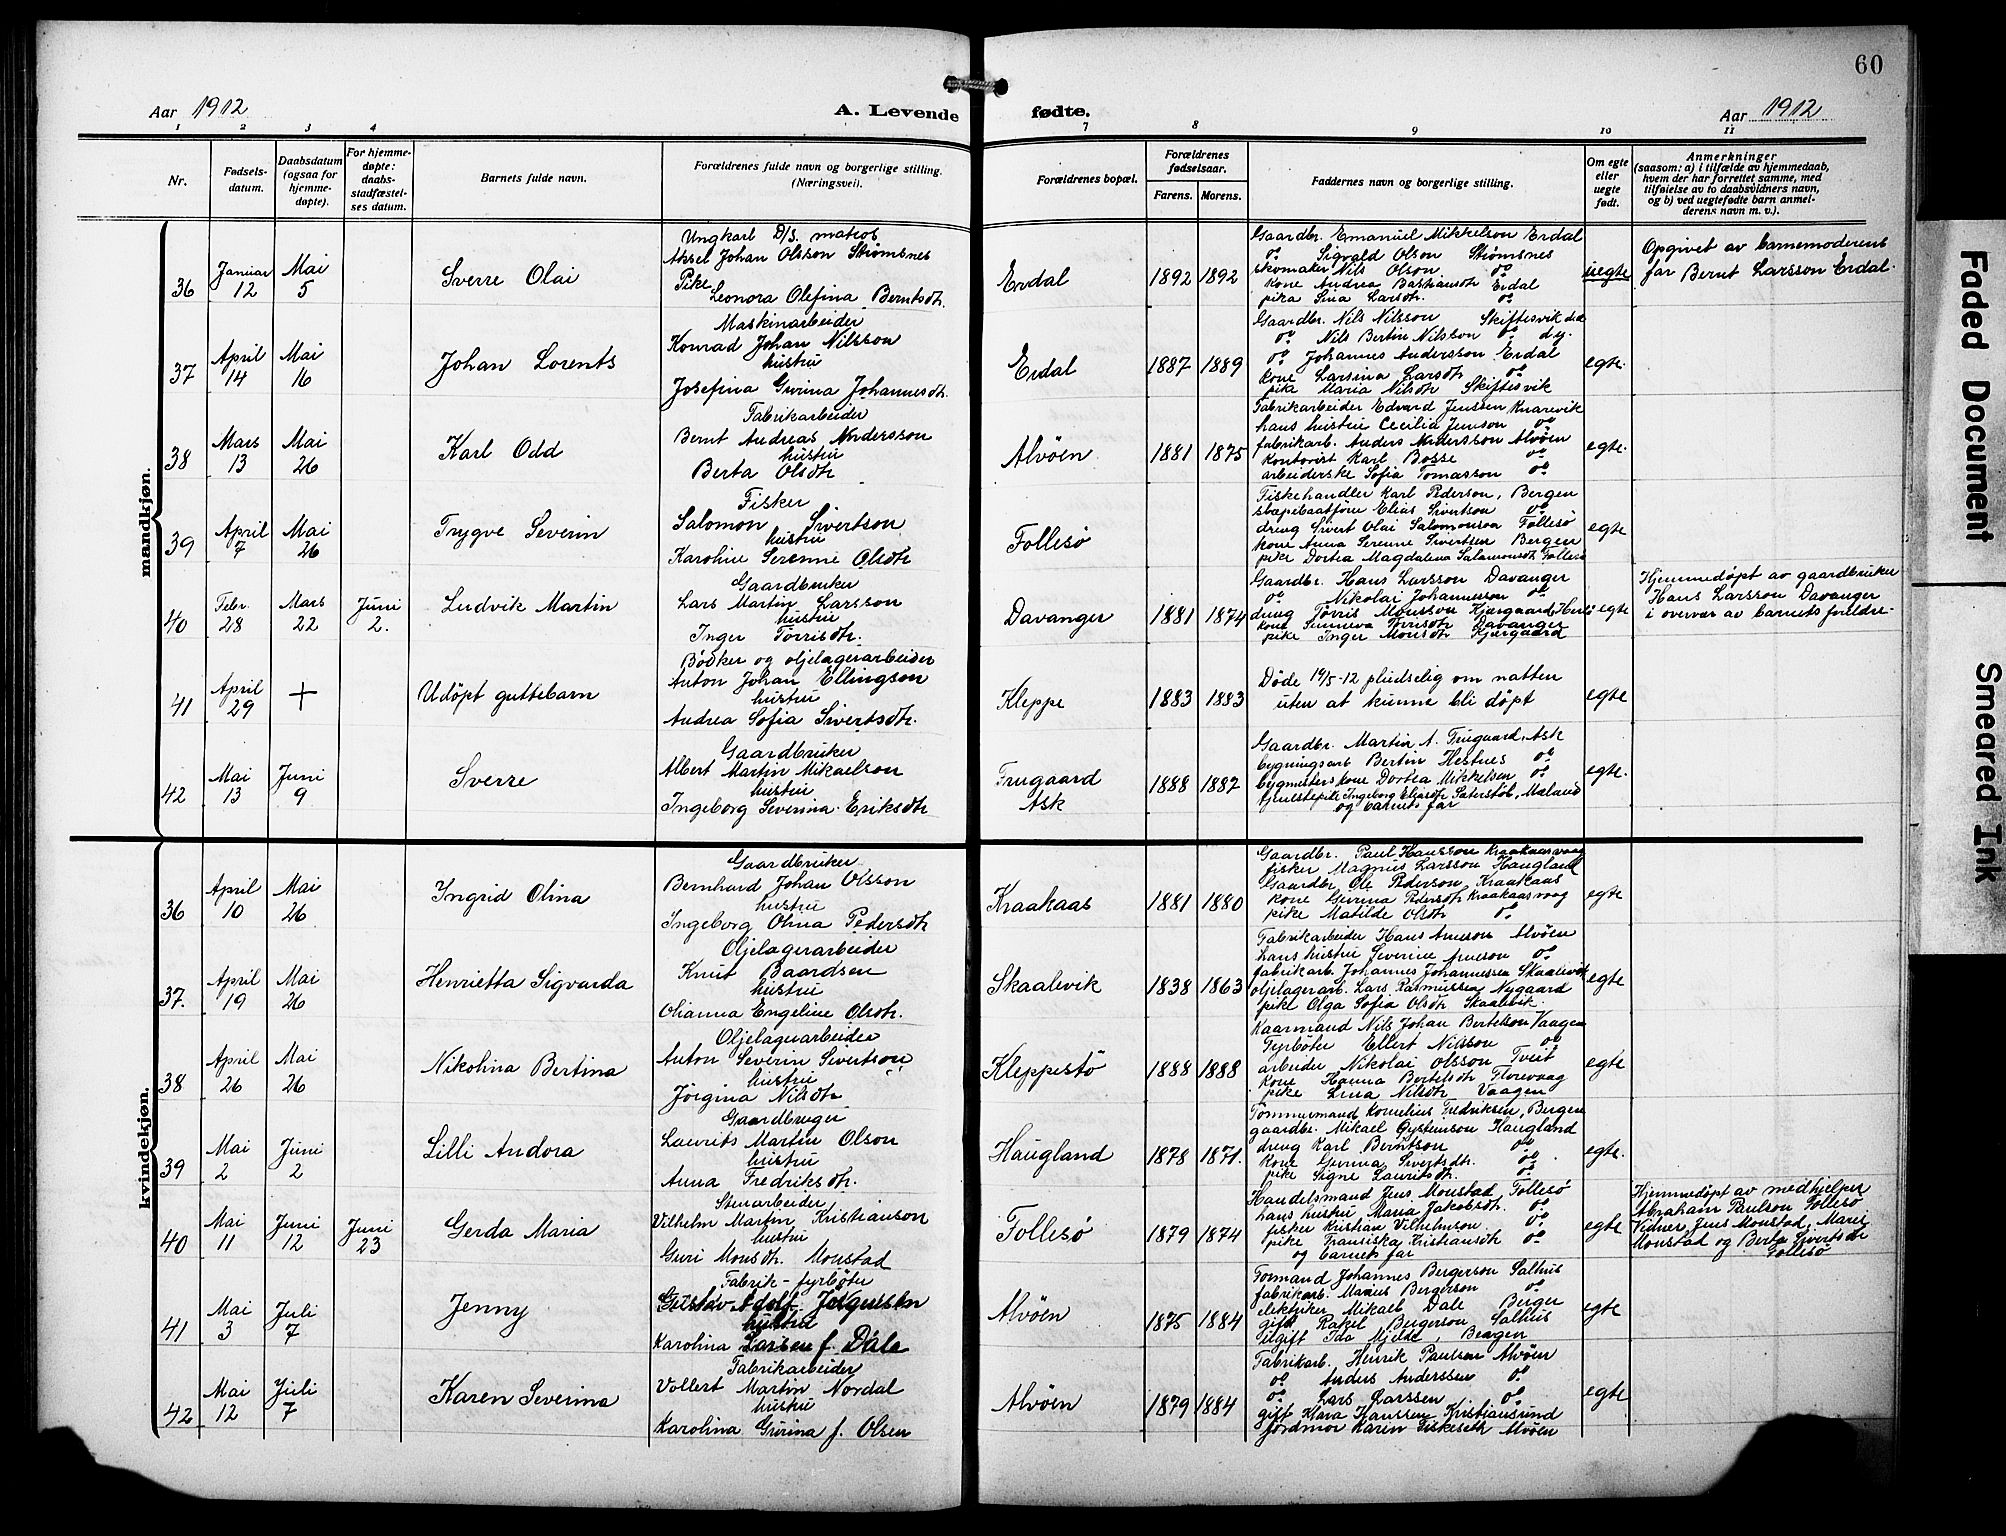 60
Aar 1912
A. Levende fødte.
Aar 1912
1 2 3 4 7 8 9 10 11
Nr.
Fødsels-
datum.
Daabsdatum
(ogsaa for
hjemme-
døpte).
For hjemme-
døpte:
daabs-
stadfæstel-
ses datum.
Barnets fulde navn.
Forældrenes fulde navn og borgerlige stilling.
(Næringsvei).
Forældrenes bopæl.
Forældrenes
fødselsaar.
Farens. Morens.
Faddernes navn og borgerlige stilling.
Om egte
eller
uegte
født.
Anmerkninger
(saasom: a) i tilfælde av hjemmedaab,
hvem der har forrettet samme, med
tilføielse av to daabsvidners navn,
og b) ved uegtefødte barn anmel-
derens navn m. v.).
mandkjøn.
36 Januar 12 Mai 5 Sverre Olai
Ungkarl D/S. matros
Aksel Johan Olsson Strømsnes
Pike
Leonora Olefina Berntsdtr.
Erdal 1892 1892
Gaardbr. Emanuel Mikkelson Erdal
do Sigvald Olson Strømsnes
skomaker Nils Olson do
kone Andrea Bastiansdtr Erdal
pika Sina Larsdtr. do
uegte
Opgivet av barnemoderens
far Bernt Larsson Erdal.
37 April 14 Mai 16 Johan Lorents
Maskinarbeider
Konrad Johan Nilsson
hustru
Josefina Gurina Johannesdtr.
Erdal 1887 1889
Gaardbr. Nils Nilsson Skiftesvik
do Nils Bertin Nilsson do
do Johannes Andersson Erdal
kone Larsina Larsdtr do
pike Maria Nilsdtr Skiftesvik
egte.
38 Mars 13 Mai 26 Karl Odd
Fabrikarbeider
Bernt Andreas Andersson
hustru
Berta Olsdtr
Alvøen 1881 1875
Fabrikarbeider Edvard Jenssen Knarevik
hans hustru Cecilia Jenson do
fabrikarb. Anders Andersson Alvøen
kontorist Karl Bosse do
arbeiderske Sofia Tomasson do
egte.
39 April 7 Mai 26 Trygve Severin
Fisker
Salomon Sivertson
hustru
Karoline Serenne Olsdtr
Follesø
Fiskehandler Karl Pederson, Bergen
Elias Sivertson do
dreng Sivert Olai Salomonson Follesø
kone Anna Serenne Sivertsen Bergen
pike Dortea Magdalena Salamonsdtr Follesø
egte
40 Febr. 28 Mars 22 Juni 2. Ludvik Martin
Gaardbruker
Lars Martin Larsson
hustru
Inger Torrisdtr.
Davanger 1881 1874
Gaardbr. Hans Larsson Davanger
do Nikolai Johannesson do
dreng Torris Monsson Kjærgaard, Herlø
kone Sunneva Torrisdtr Davanger
pike Inger Monsdtr Kjærgaard
egte
Hjemmedøpt av gaardbruker
Hans Larsson Davanger
i overvær av barnets foreldre.
41 April 29 + Udøpt guttebarn
Bødker og oljelagerarbeider
Anton Johan Ellingson
hustru
Andrea Sofia Sivertsdtr.
Kleppe 1883 1883
Døde 14/5-12 pludselig om natten
uten at kunne bli døpt
egte
42 Mai 13 Juni 9 Sverre
Gaardbruker
Albert Martin Mikaelson
hustru
Ingeborg Severina Eriksdtr
Frugaard
Ask
1888 1887
Gaardbr. Martin A. Frugaard, Ask
bygningsarb Bertin Hestnes do
bygmesters kone Dortea Mikkelsen do
tjenestepike Ingeborg Eliasdtr Sæterstøl, Mæland
og barnets far
egte.
kvindekjøn.
36 April 10 Mai 26 Ingrid Olina
Gaardbruker
Bernhard Johan Olsson
hustru
Ingeborg Olina Pedersdtr
Kraakaas 1881 1880
Gaardbr. Paul Hansson Kraakaasvaag
fisker Magnus Larsson Haugland
Gaardbr Ole Pederson Kraakaas
kone Gurina Pedersdtr Kraakaasvaag
pike Matilde Olsdtr do
egte
37. April 19 Mai 26 Henrietta Sigvarda
Oljelagerarbeider
Knut Baardsen
hustru
Olianna Engeline Olsdtr.
Skaalevik 1838 1863
Fabrikarbeider Hans Arneson Alvøen
hans hustru Severine Arneson do
fabrikarb. Johannes Johannessen Skaalevik
oljelagerarb. Lars Rasmussen Nygaard
pike Olga Sofia Olsdtr Skaalevik.
egte
38 April 26 Mai 26 Nikolina Bertina
Oljelagerarbeider
Anton Severin Sivertson
hustru
Jørgina Nilsdtr
Kleppestø 1888 1888
Kaarmand Nils Johan Bertelson Vaagen
Fyrbøter Ellert Nilsson do
arbeider Nikolai Olsson Tveit
kone Hanna Bertelsdtr Florevaag
pike Lina Nilsdtr Vaagen
egte
39 Mai 2 Juni 2 Lilli Andora
Gaardbruger
Laurits Martin Olson
hustru
Anna Fredriksdtr.
Haugland 1878 1871.
Tømmermand Kornelius Fredriksen, Bergen
gaardbr. Mikael Gystenson Haugland
dreng Karl Berntson do
kone Gurina Sivertsdtr. do
pike Signe Lauritsdtr. do
egte.
40 Mai 11 Juni 12 Juni 23 Gerda Maria
Stenarbeider
Vilhelm Martin Kristianson
hustru
Guri Monsdtr. Monstad
Follesø 1879 1874
Handelsmand Jens Monstad Follesø
hans hustru Maria Jakobsdtr. do
fisker Kristian Vilhelmson do
pike Fransiska Kristiansdtr do
og barnets far
egte
Hjemmedøpt av medhjelper
Abraham Paulson Follesø
Vidner Jens Monstad, Marie
Monstad og Berta Sivertsdtr
Follesø
41 Mai 3 Juli 7 Jenny
Fabrik-fyrbøter
Gustav Adolf
hustru
Karolina Larsen f. Dale
Alvøen 1875 1884
Formand Johannes Bergerson Salhus
fabrikarb. Marius Bergerson do
elektriker Mikael Dale Berger
gift Rakel Bergerson Salhus
ugift Ida Mjelde, Bergen
egte
42 Mai 12 Juli 7 Karen Severina
Fabrikarbeider
Vollert Martin Nordal
hustru
Karolina Gurina f. Olsen
Alvøen 1879 1884
Fabrikarb. Henrik Paulsen Alvøen
do Anders Anderssen do
do Lars Larssen do
gift Klara Hanssen Kristiansund
jordmor Karin Fiskeseth Alvøen
egte
Faded Document
Smeared Ink